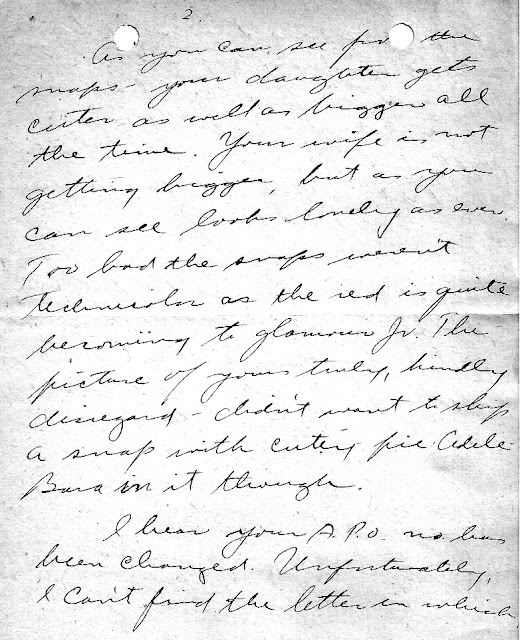 2.
As you can see fro the
snaps - your daughter gets
cuter as well as bigger all
the time. Your wife is not
getting bigger, but as you
can see looks lovely as ever.
Too bad the snaps weren't
technicolor as the red is quite
becoming to glamour Jr. The
picture of yours truly, kindly
disregard - didn't want to skip
a snap with cutey pie Adele
Bara in it though.
I hear your A.P.O. no. has
been changed. Unfortunately,
I can't find the letter in which